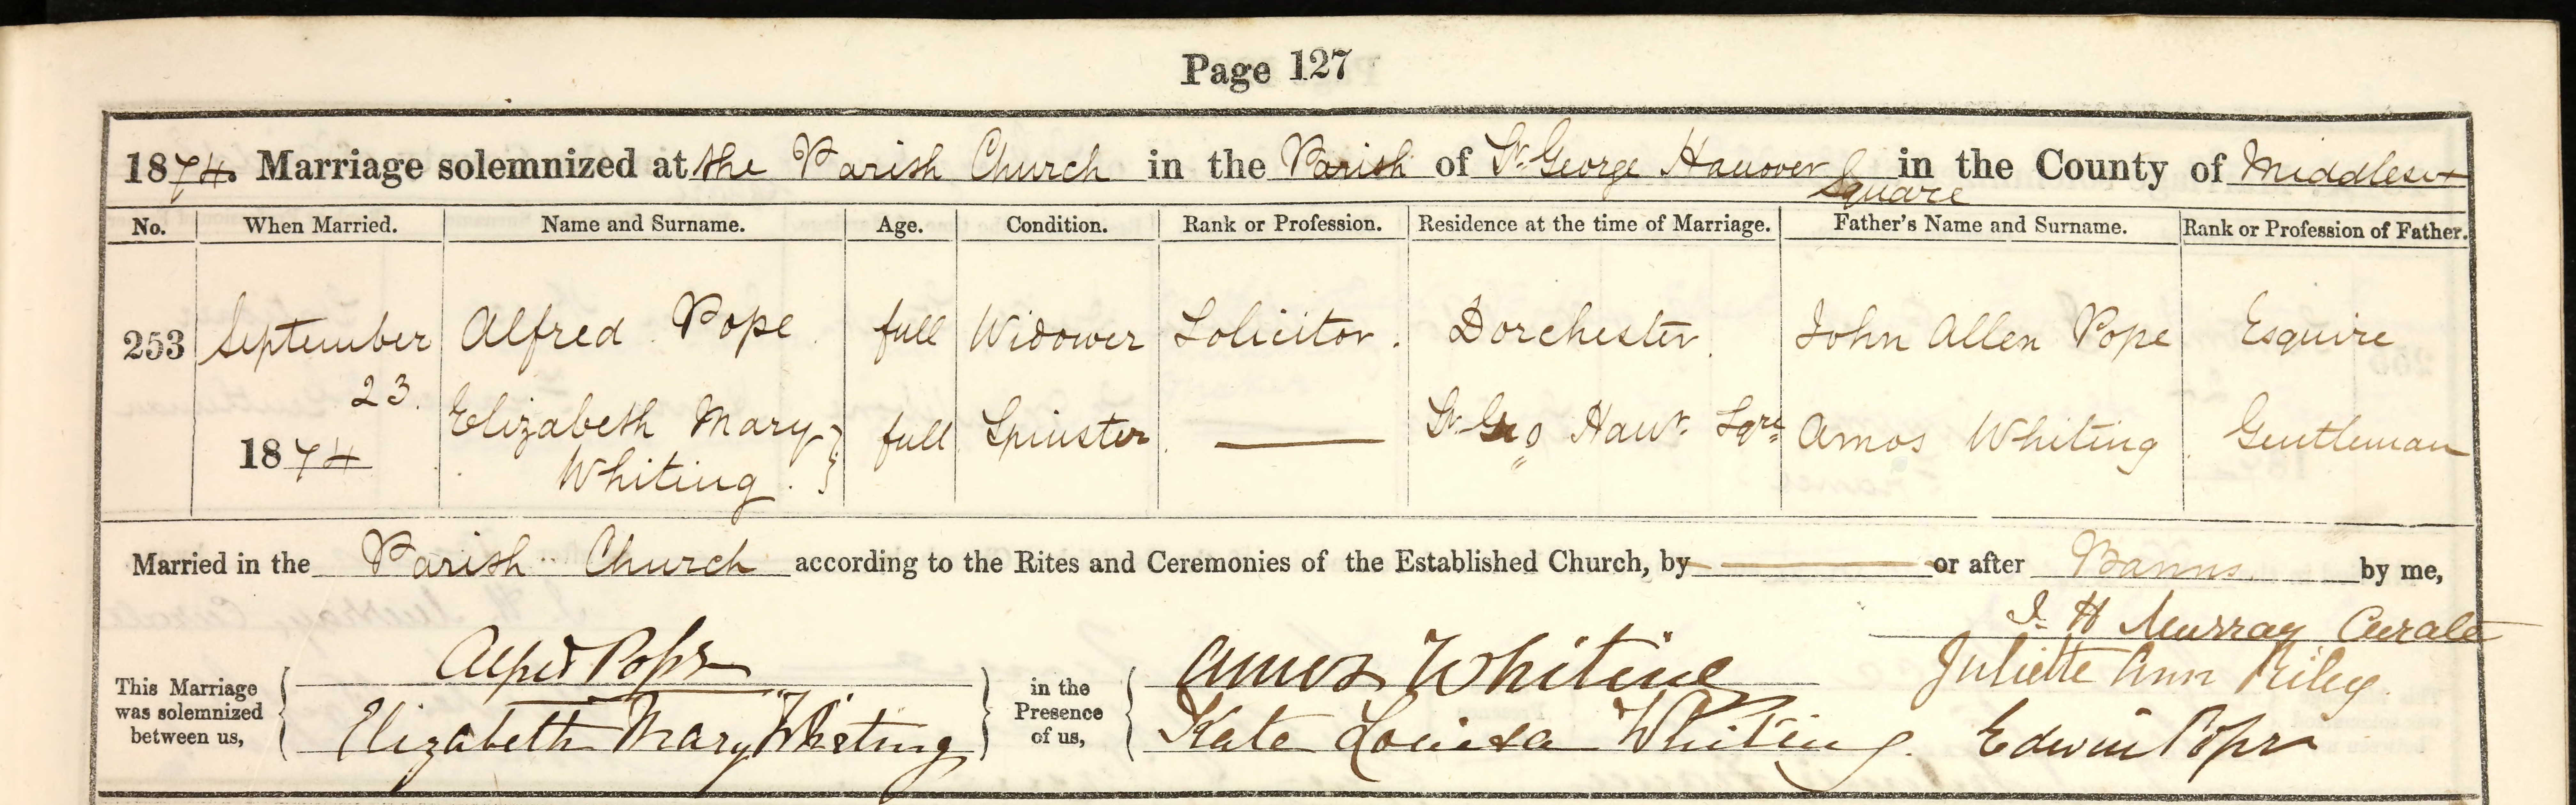 Page 127
1874. Marriage solemnized at the Parish Church in the Parish of St. George Hanover Square in the County of Middlesex
No. When Married. Name and Surname. Age. Condition. Rank or Profession. Residence at the time of Marriage. Father's Name and Surname. Rank or Profession of Father.
253 September 23. 1874 Alfred Pope full Widower Solicitor. Dorchester. John Allen Pope Esquire
Elizabeth Mary Whiting. full Spinster St. Geo Hanr. Sqre Amos Whiting Gentleman
Married in the Parish Church according to the Rites and Ceremonies of the Established Church, by or after Banns. by me,
J. H Murray Curate
This Marriage was solemnized between us, Alfred Pope in the Presence of us, Amos Whiting Juliette Ann Riley.
Elizabeth Mary Whiting Kate Louisa Whiting. Edwin Pope